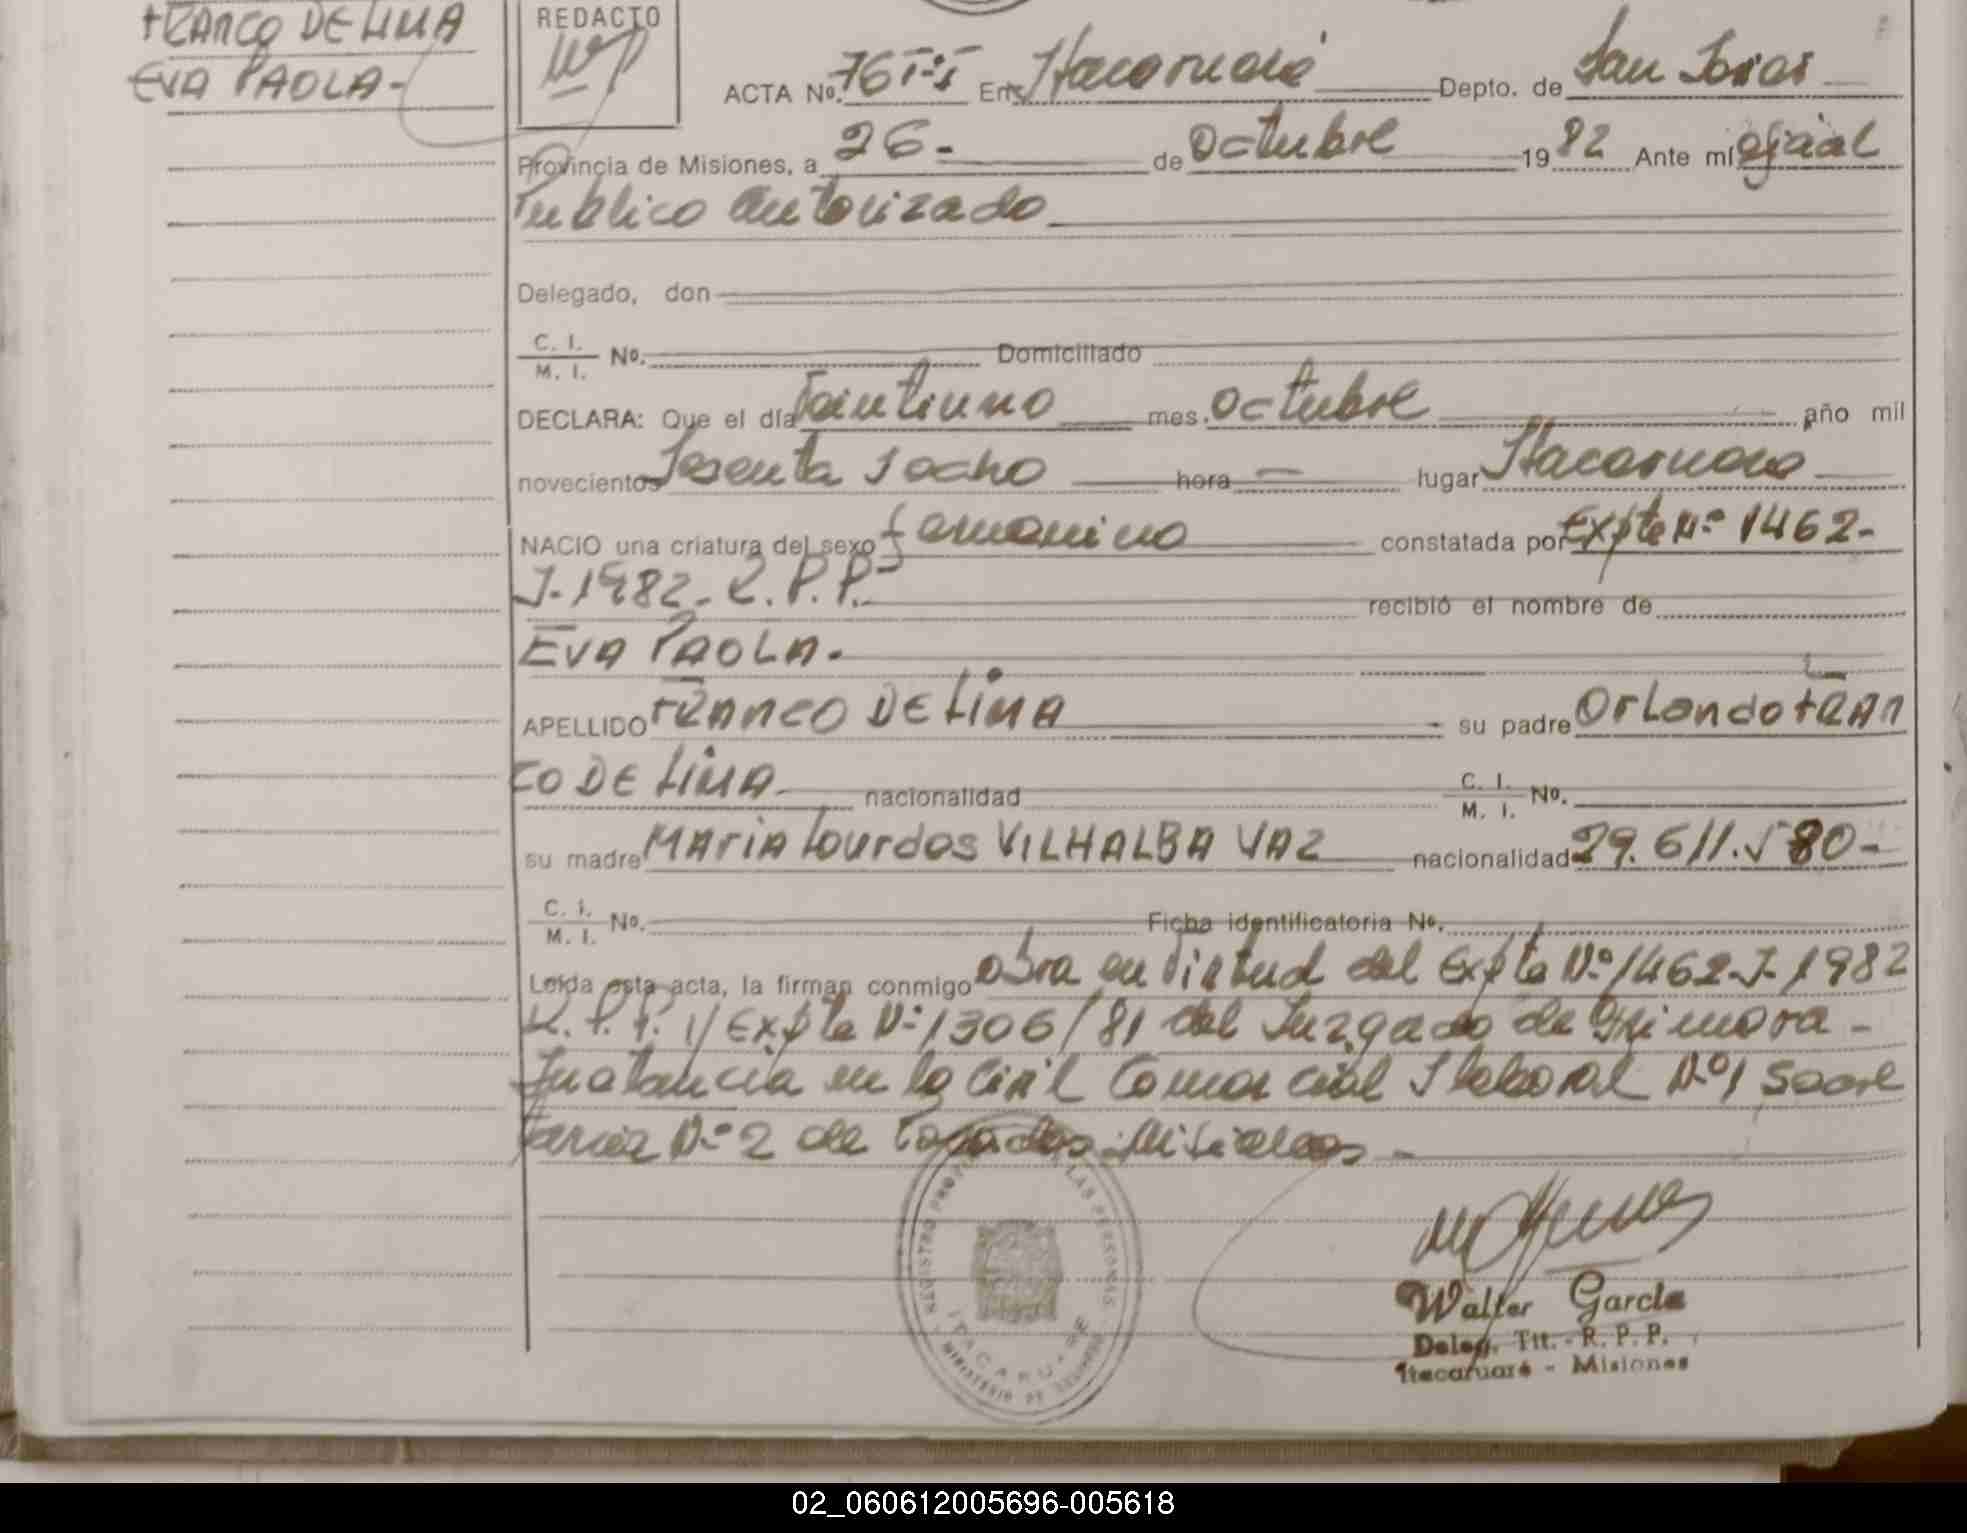 FRANCO DE LIMA
EVA PAOLA-
REDACTO
ACTA No. 76 En Itacaruaré Depto. de San Javier
Provincia de Misiones, a 26- de Octubre 1982 Ante mí oficial
Publico autorizado
Delegado, don
C. I. M. I. No. Domiciliado
DECLARA: Que el día Vaintiuno mes Octubre año mil
novecientos Sesenta y ocho hora — lugar Itacaruare
NACIO una criatura del sexo femenino constatada por Expte Nº 1462-
J-1982-R.P.P.- recibió el nombre de
EVA PAOLA.
APELLIDO FRANCO DE LIMA su padre Orlando FRAN
CO DE LIMA nacionalidad C. I. M. I. No.
su madre MARIA Lourdes VILHALBA VAZ nacionalidad 29.611.580-
C. I. M. I. No. Ficha identificatoria No.
Leída esta acta, la firman conmigo obra en virtud del Expte Nº 1462-J-1982
R.P.P. Expte Nº 1306/81 del Juzgado de Primera-
Instancia en lo Civil Comercial y laboral Nº 1 Secre
taria Nº 2 de Posadas-Misiones-
ITACARUARE
Walter García
Deleg. Tit. - R. P. P.
Itacaruaré - Misiones
02_060612005696-005618